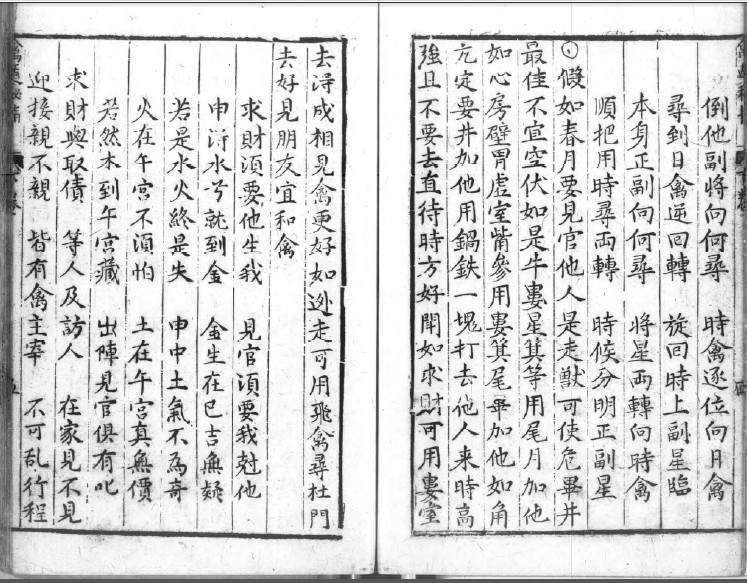 倒他副将向何尋　時禽逐位向日禽
尋到日禽逆回轉　旋回時上副星臨
本身正副向何尋　將星両轉向時禽
順把用時尋両轉　時候分明正副星
假如春月要見官他人是走獸可使危畢井
最佳不宜空伏如是牛婁星箕等用尾月加他
如心房壁胃虛室觜參用婁箕尾畢加他如角
亢定要井加他用鍋鉄一塊打去他人来時高
強且不要去直待時方好閗如求財可用婁室
去淂成相見禽更好如逃走可用飛禽尋杜門
去好見朋友宜和禽
求財湏要他生我　見官湏要我尅他
申淂水兮就到金　金生在巳吉無疑
若是水火終是失　申中土氣不為奇
火在午宮不湏怕　土在午宮真無價
若然木到午宮藏　出陣見官俱有叱
求財與取債　等人及訪人　在家見不見
迎接親不親　皆有禽主宰　不可乱行程